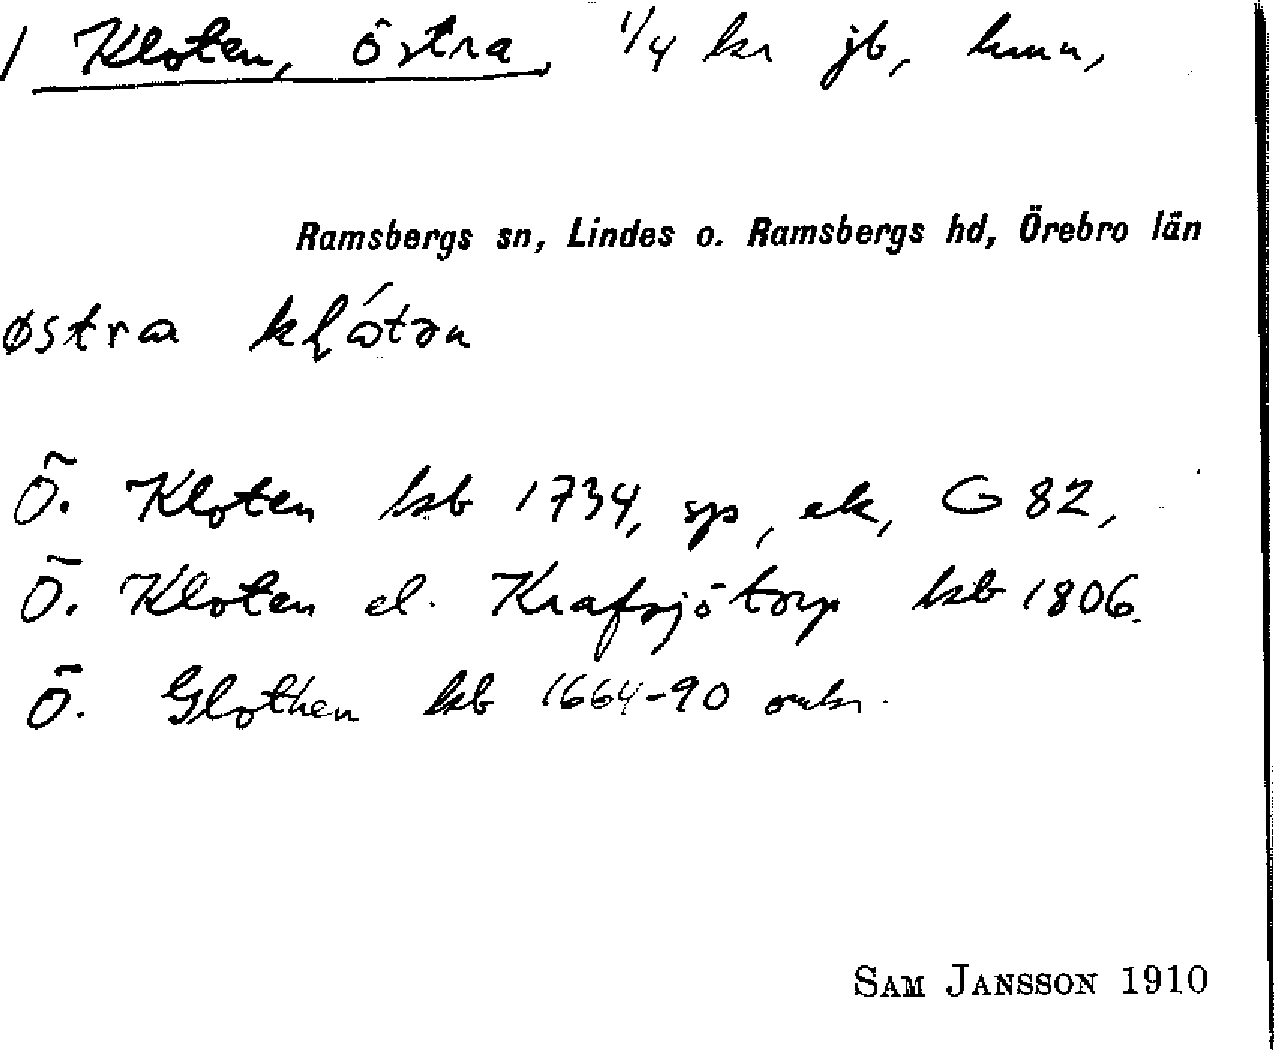 1 Kloten, Östra, 1/4 kr jb, hmn,
Ramsbergs sn, Lindes o. Ramsbergs hd, Örebro län
østra kḷó̱tən
Ö. Kloten kb 1734, sp, ek, G 82,
Ö. Kloten el. Krafsjötorp kb 1806.
Ö. Glothen kb 1664-90
SAM JANSSON 1910